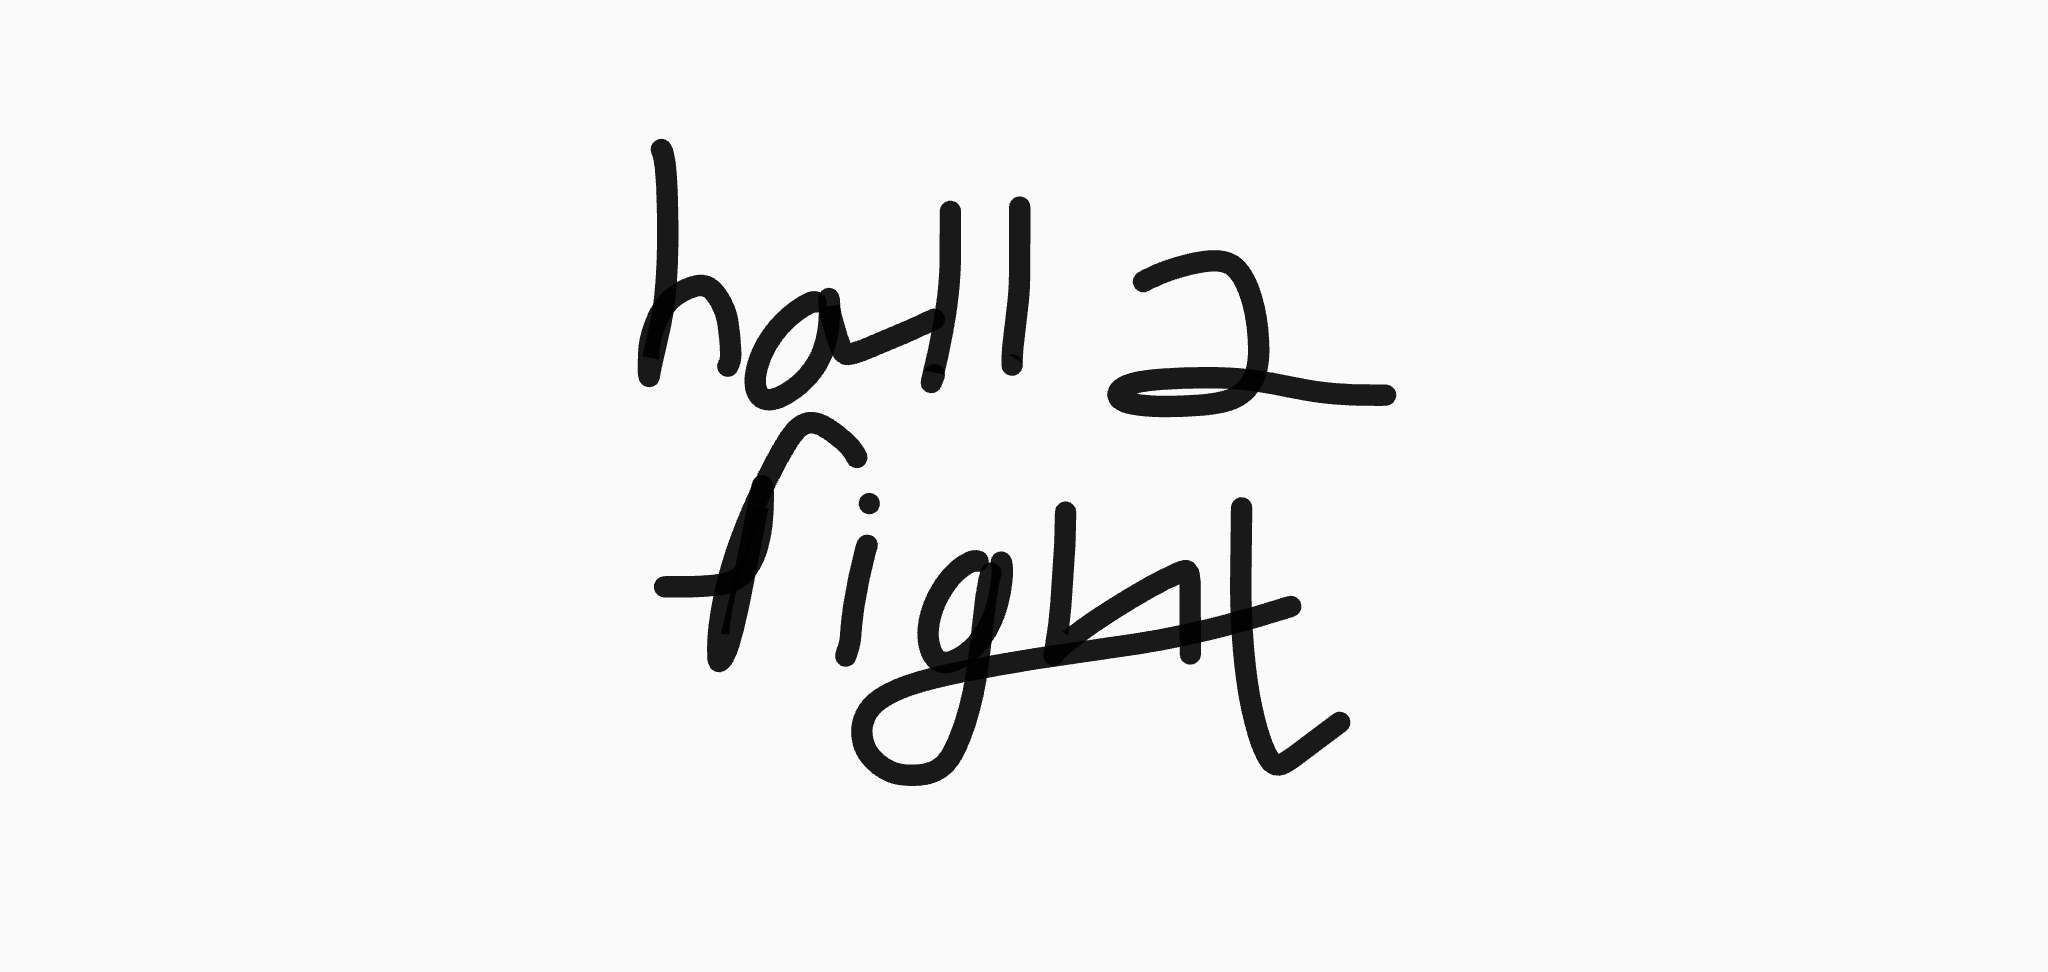 hall 2
fight